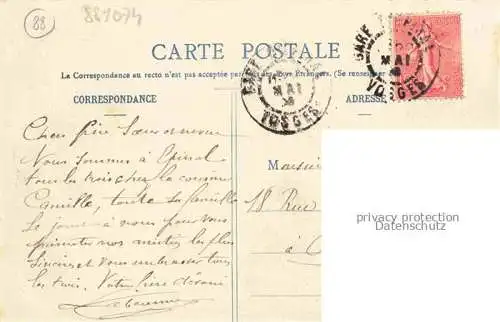 88
881074
CARTE POSTALE
La Correspondance au recto n'est pas acceptée par les Étrangers. (Se renseigner
CORRESPONDANCE
ADRESSE
GARE
MAI
VOSGES
GARE
MAI
VOSGES
Cher frère Sœur et neveu
Nous sommes à Epinal
tous les trois chez la cousine
Camille, toute la famille
se joint à nous pour vous
présenter nos amitiés les plus
sincères et vous embrasser tous
les trois. Votre frère dévoué
Monsieur
18 Rue
à
privacy protection
Datenschutz